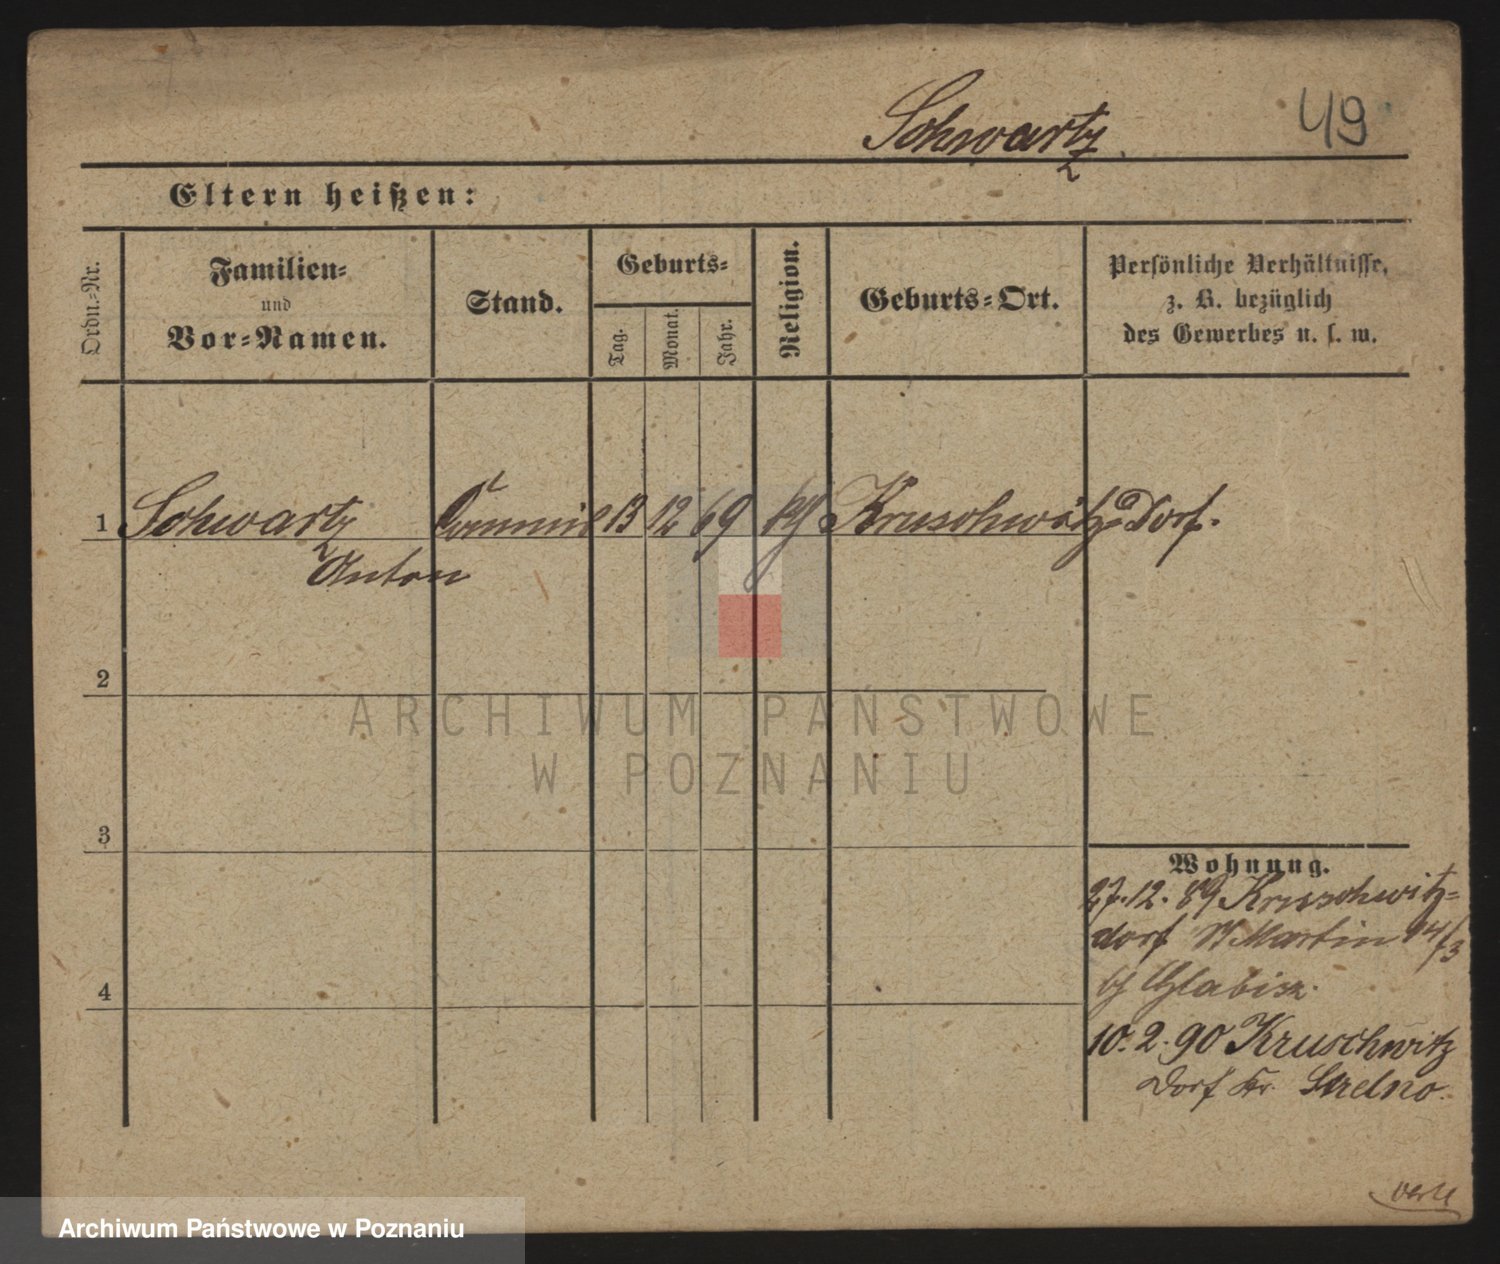 Schwartz
49
Eltern heißen:
Ordn.-Nr.
Familien-
und
Vor-Namen.
Stand.
Geburts-
Tag.
Monat.
Jahr.
Religion.
Geburts-Ort.
Persönliche Verhältnisse,
z. B. bezüglich
des Gewerbes u. s. w.
1 Schwartz Commis 13 12 69 Kruschwitz Dorf.
Anton
2
ARCHIWUM PAŃSTWOWE
W POZNANIU
3
Wohnung.
27.12.89 Kruschwitz-
dorf St Martin 14/3
Glabisz.
4
10.2.90 Kruschwitz
Dorf Kr. Strelno.
Archiwum Państwowe w Poznaniu